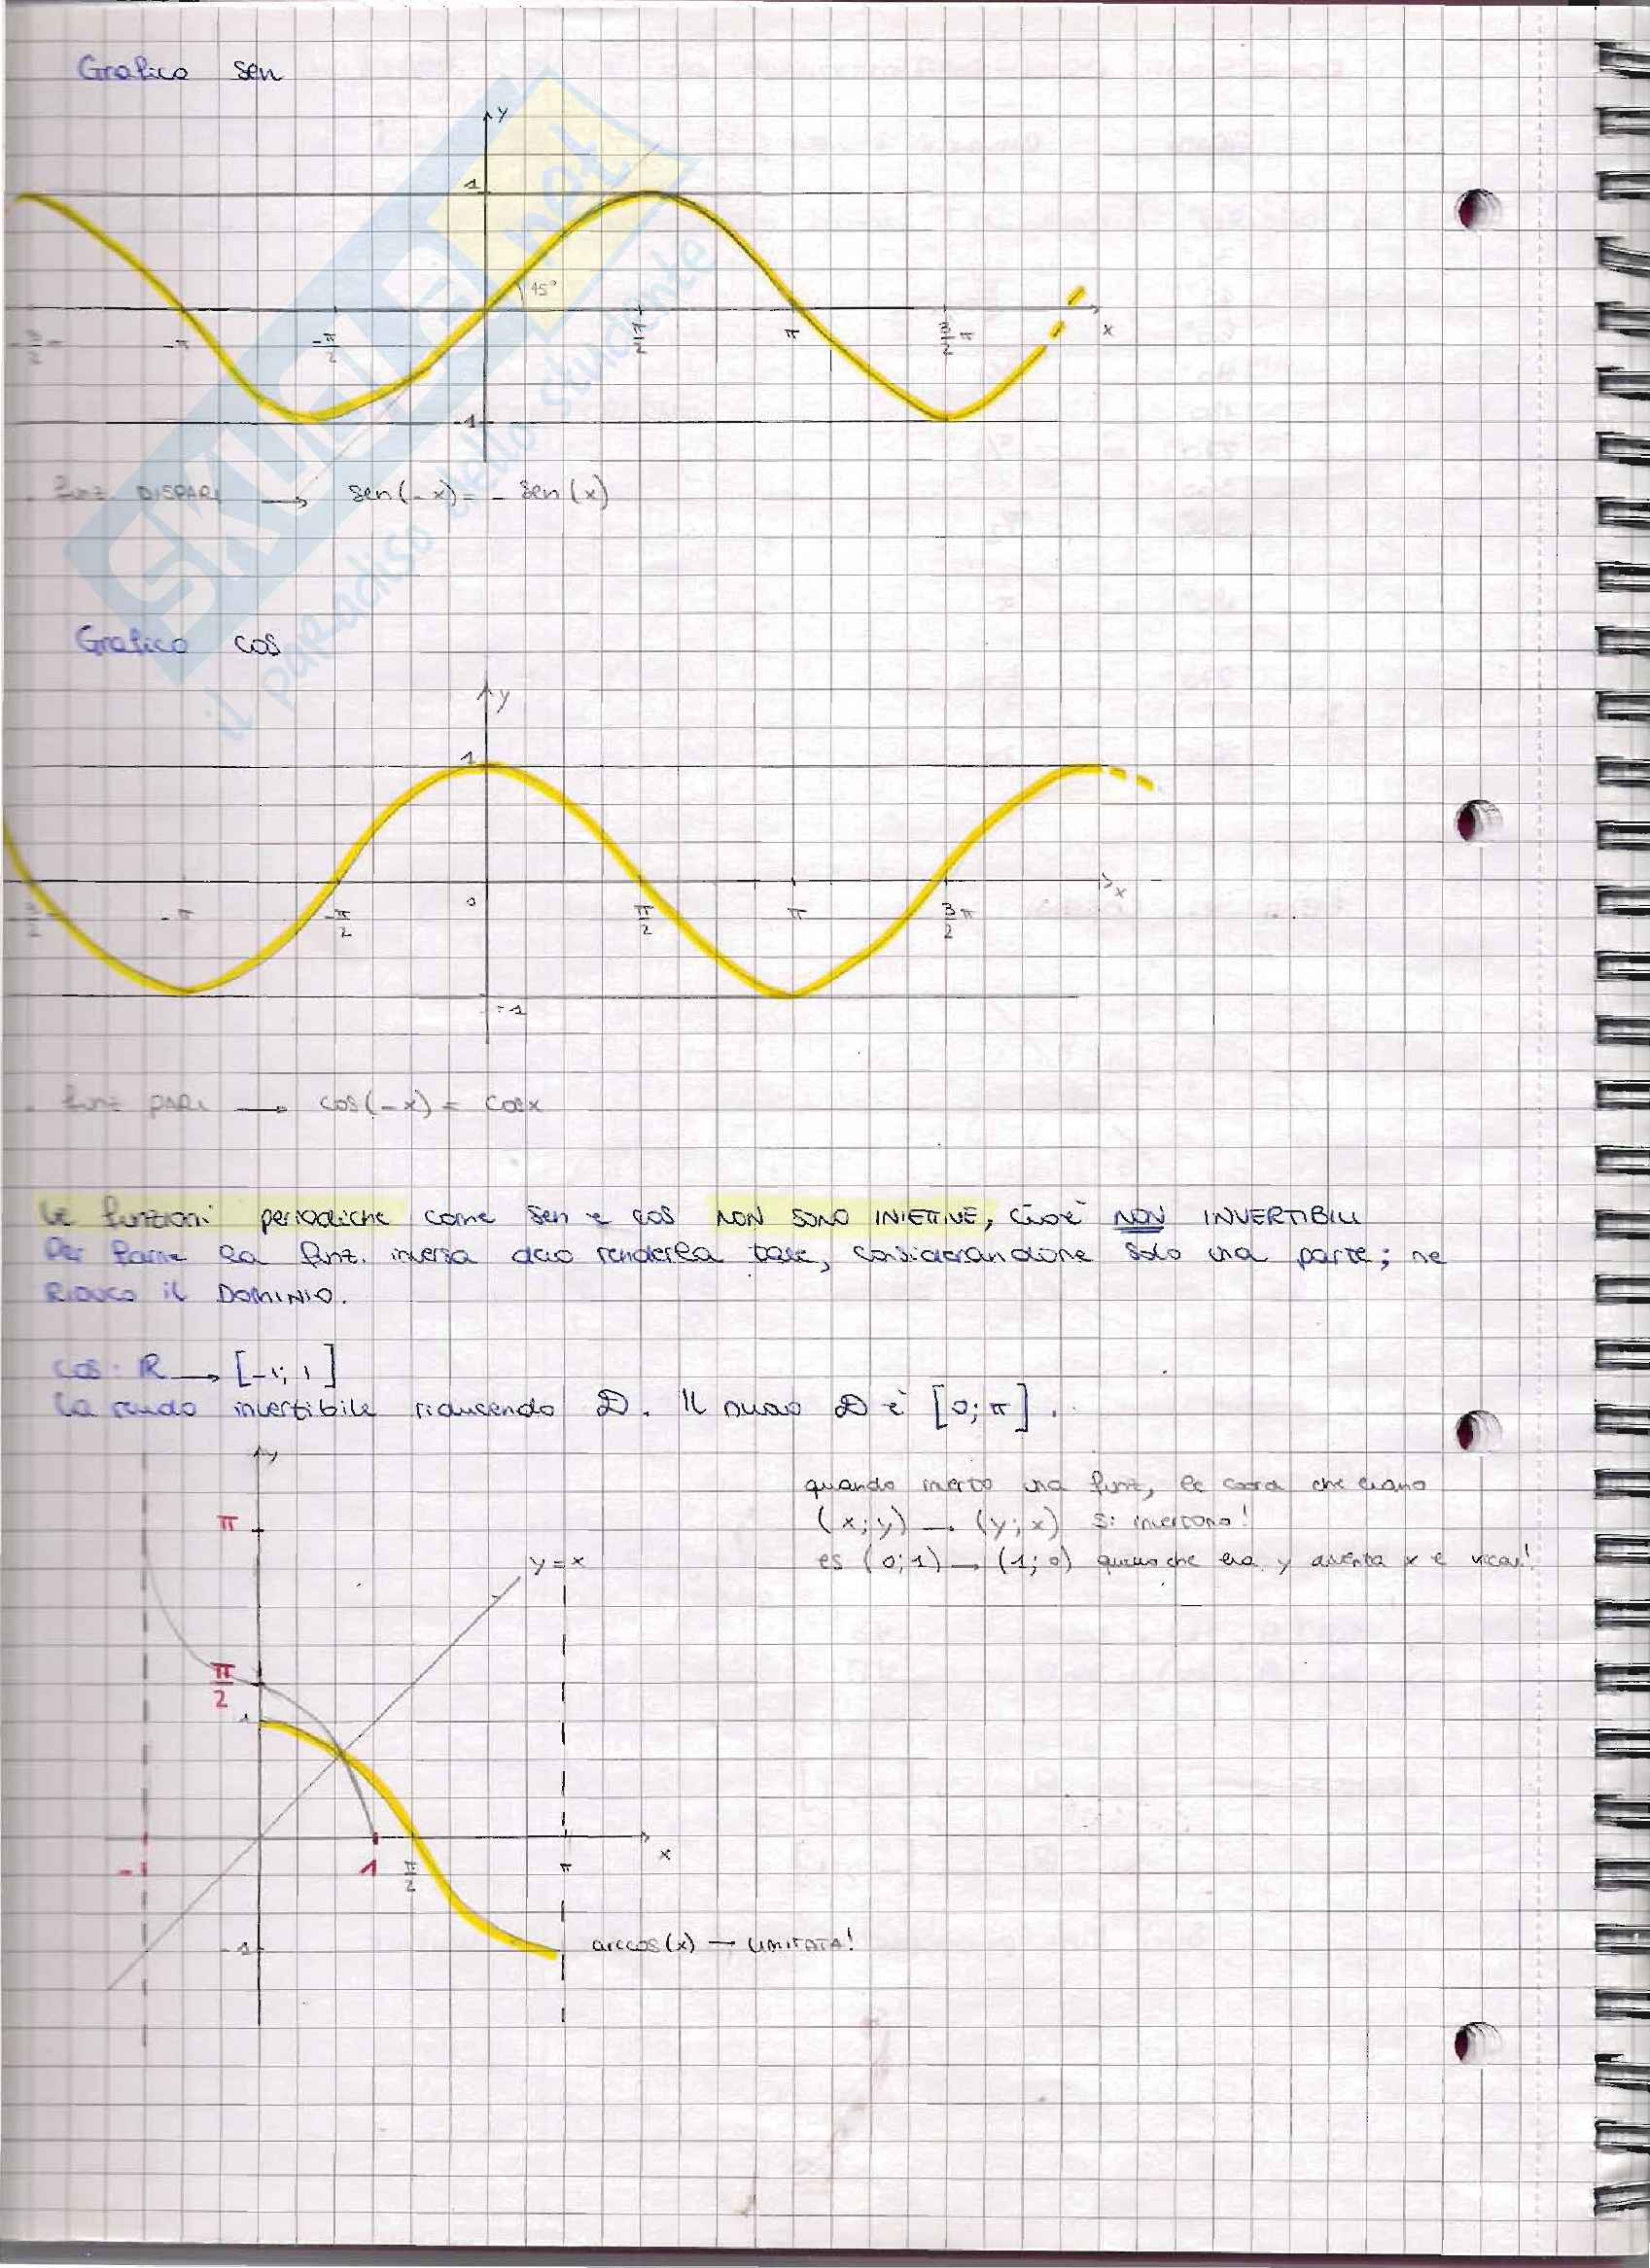 Grafico sen
y
1
45°
-3/2 -π -π/2 π/2 π 3/2 π x
-1
funz. DISPARI → sen(-x) = - sen(x)
SKUOLA.net
il paradiso dello studente
Grafico cos
y
1
-3/2 -π -π/2 0 π/2 π 3/2 π x
-1
funz PARI → cos(-x) = cosx
Le funzioni periodiche come sen e cos NON SONO INIETTIVE, cioè NON INVERTIBILI
Per farne la funz. inversa devo renderla tale, considerandone solo una parte; ne
RIDUCO il DOMINIO.
cos: ℝ → [-1; 1]
La rendo invertibile riducendo D. Il nuovo D è [0; π].
y
quando inverto una funz, le coord che erano
π
(x;y) → (y;x) si invertono!
y=x
es (0;1) → (1;0) quello che era y diventa x e
π/2
1
-1 1 π/2 π x
-1
arccos(x) → LIMITATA!